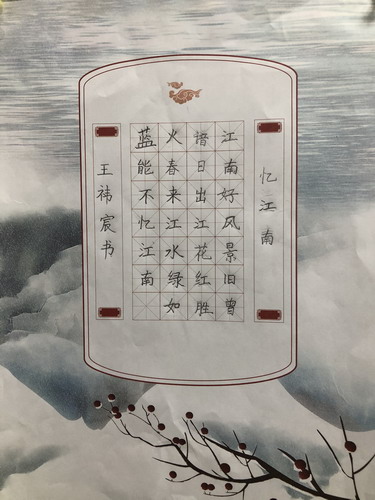 忆江南
江南好风景旧曾
谙日出江花红胜
火春来江水绿如
蓝能不忆江南
王祎宸书